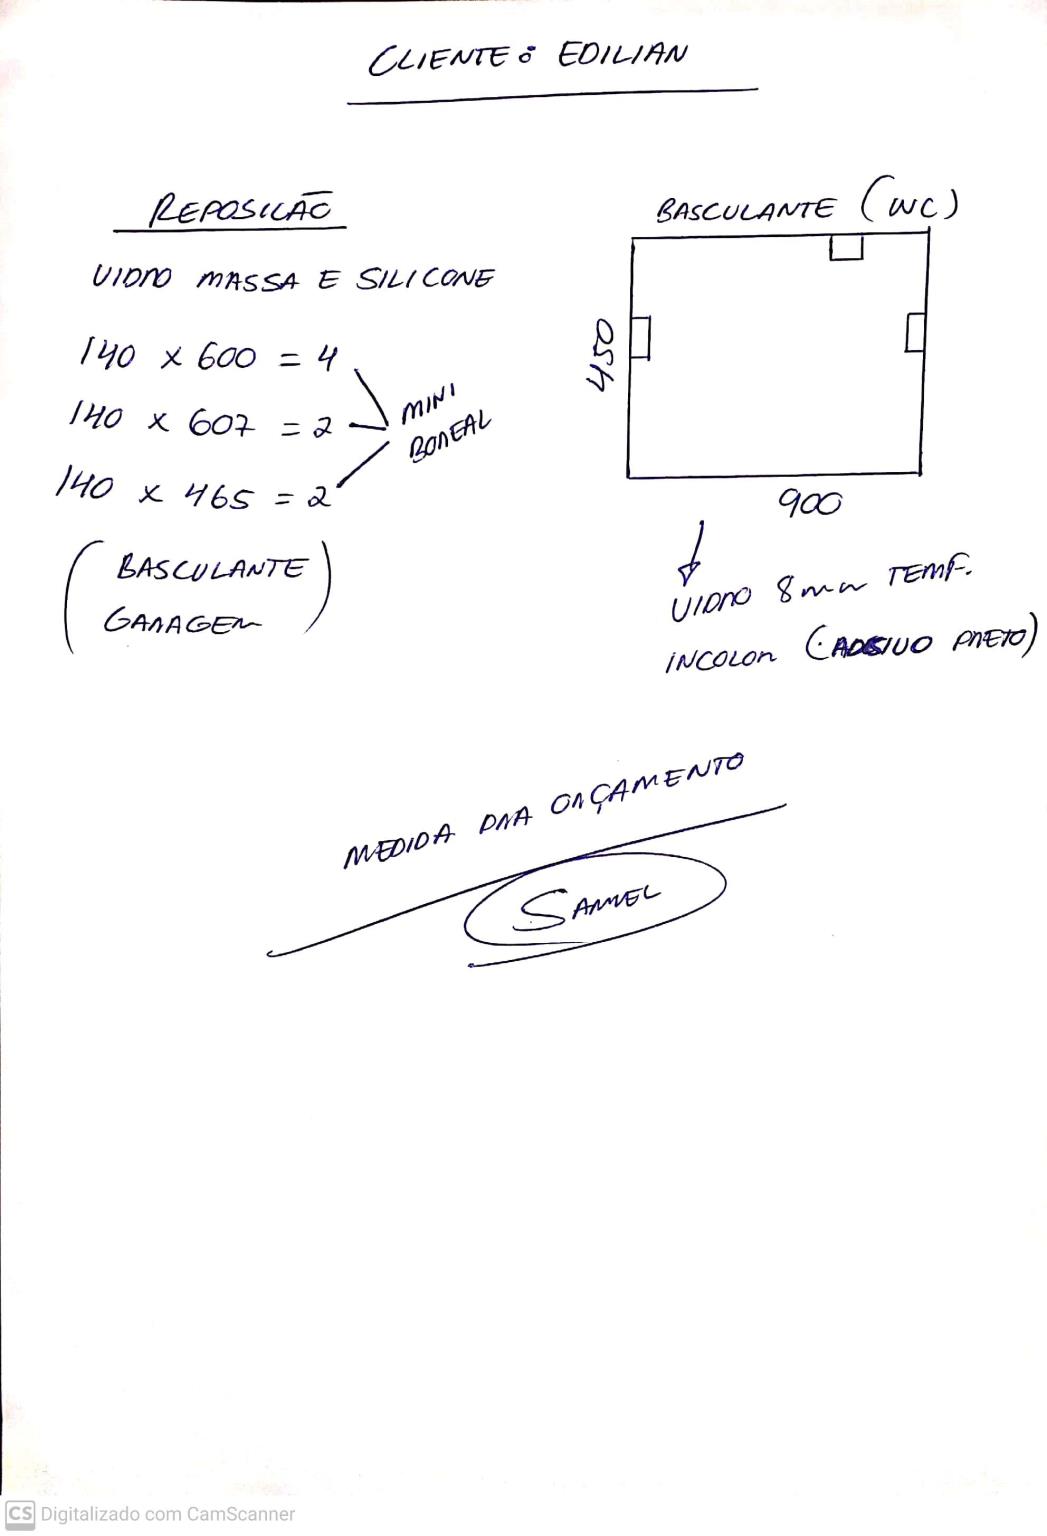 CLIENTE: EDILIAN
REPOSIÇÃO
VIDRO MASSA E SILICONE
140 x 600 = 4
140 x 607 = 2
140 x 465 = 2
MINI
BOREAL
(BASCULANTE
GARAGEM)
BASCULANTE (WC)
450
900
VIDRO 8mm TEMP.
INCOLOR (ADESIVO PRETO)
MEDIDA PRA ORÇAMENTO
SAMUEL
CS Digitalizado com CamScanner